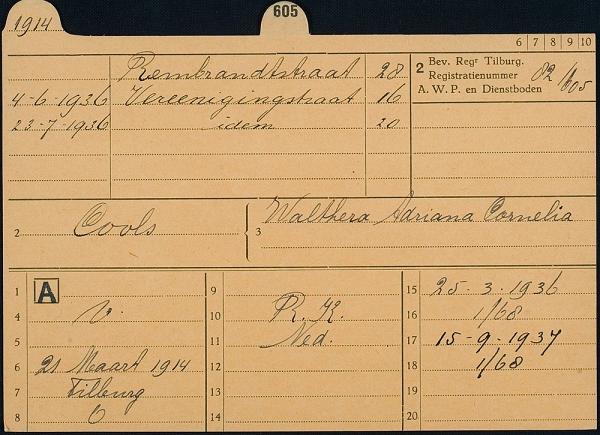 1914
605
6 7 8 9 10
Rembrandtstraat 28
4-6-1936 Vereenigingstraat 16
23-7-1936 idem 20
2 Bev. Regr Tilburg.
Registratienummer
A. W. P. en Dienstboden
82/605
2 Cools
3 Walthera Adriana Cornelia
1 A
4 V.
5
6 21 Maart 1914
7 Tilburg
8 O
9
10 R.K.
11 Ned.
12
13
14
15 25-3-1936
16 1/68
17 15-9-1937
18 1/68
19
20